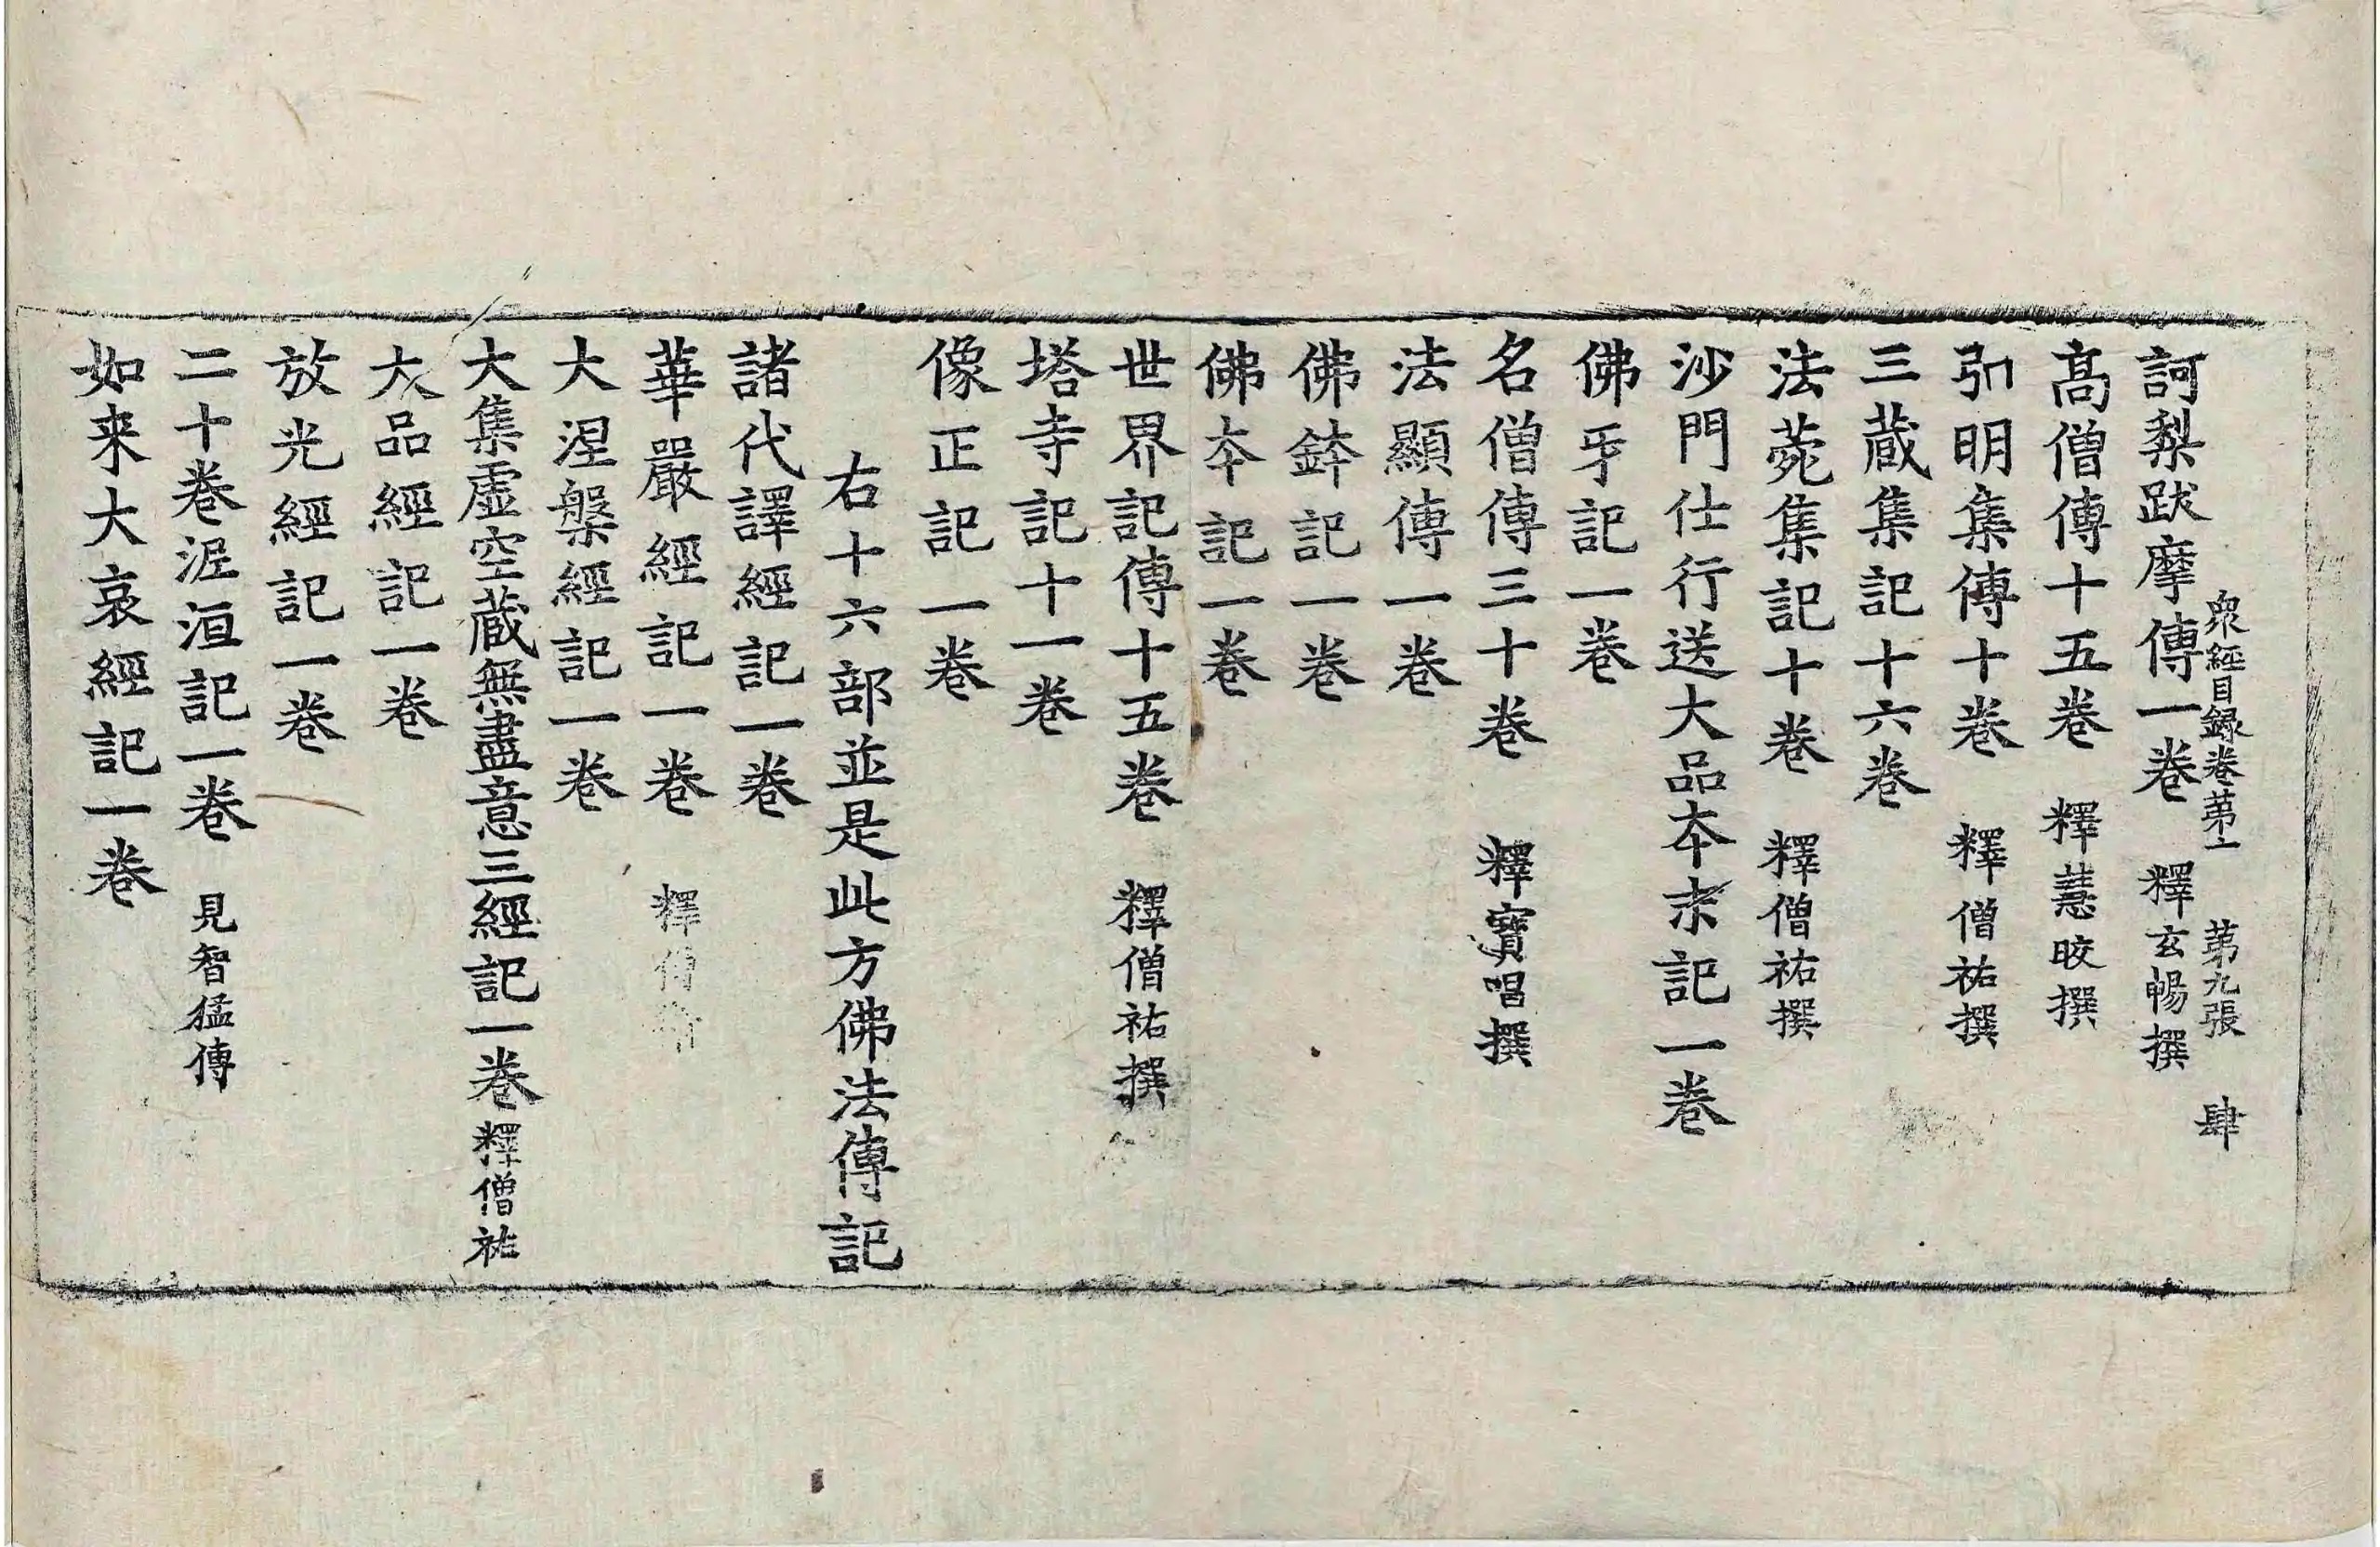 衆經目録卷第二 第九張 肆
訶梨跋摩傳一卷 釋玄暢撰
髙僧傳十五卷 釋慧晈撰
弘明集傳十卷 釋僧祐撰
三蔵集記十六卷
法菀集記十卷 釋僧祐撰
沙門仕行送大品夲末記一卷
佛牙記一卷
名僧傳三十卷 釋寶唱撰
法顯傳一卷
佛鉢記一卷
佛夲記一卷
世界記傳十五卷 釋僧祐撰
塔寺記十一卷
像正記一卷
右十六部並是此方佛法傳記
諸代譯經記一卷
華嚴經記一卷 釋僧
大涅槃經記一卷
大集虛空蔵無盡意三經記一卷 釋僧祐
大品經記一卷
放光經記一卷
二十卷泥洹記一卷 見智猛傳
如来大哀經記一卷